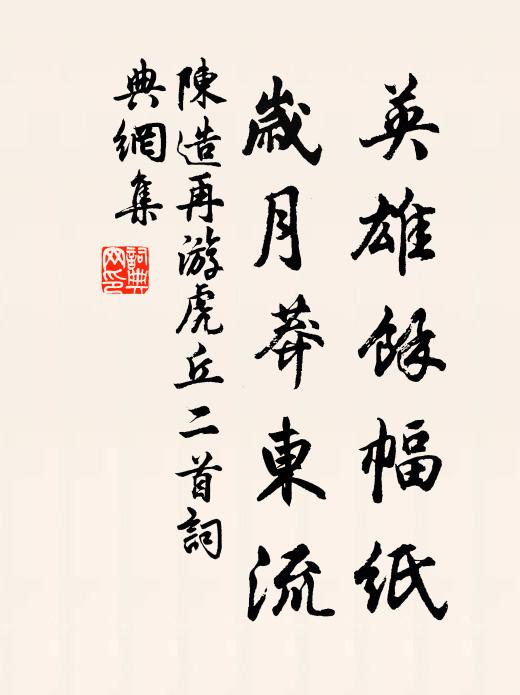 英雄餘幅紙
歲月莽東流
陳造再游虎丘二首詞
典網集
詞典
网印